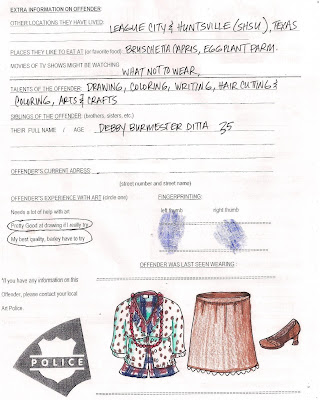 EXTRA INFORMATION ON OFFENDER
OTHER LOCATIONS THEY HAVE LIVED: LEAGUE CITY & HUNTSVILLE (SHSU), TEXAS
PLACES THEY LIKE TO EAT AT (or favorite food): BRUSCHETTA CAPRIS, EGGPLANT PARM.
MOVIES OF TV SHOWS MIGHT BE WATCHING
WHAT NOT TO WEAR,
TALENTS OF THE OFFENDER: DRAWING, COLORING, WRITING, HAIR CUTING &
COLORING, ARTS & CRAFTS
SIBLINGS OF THE OFFENDER: (brothers, sisters, etc.)
THEIR FULL NAME / AGE DEBBY BURMESTER DITTA 35
OFFENDER'S CURRENT ADRESS :
(street number and street name)
OFFENDER'S EXPERIENCE WITH ART (circle one) FINGERPRINTING:
left thumb right thumb
Needs a lot of help with art
Pretty Good at drawing if I really try
My best quality, barley have to try
OFFENDER WAS LAST SEEN WEARING :
*If you have any information on this
Offender, please contact your local
Art Police.
POLICE